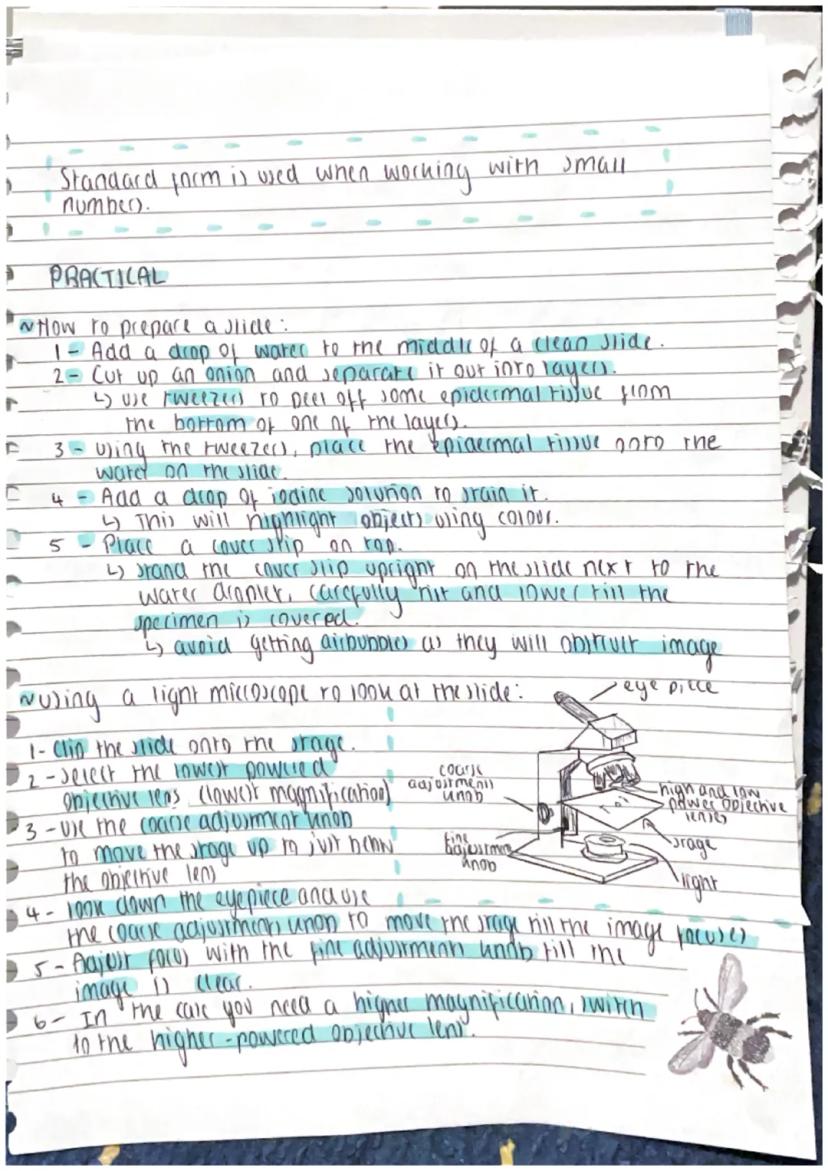 Standard form is used when working with small
numbers.
PRACTICAL
~How to prepare a slide:
1- Add a drop of water to the middle of a clean slide.
2- Cut up an onion and separate it out into layers.
↳ use tweezers to peel off some epidermal tissue from
the bottom of one of the layers.
3- using the tweezers, place the epidermal tissue onto the
water on the slide.
4- Add a drop of iodine solution to stain it.
↳ This will highlight objects using colour.
5 - Place a cover slip on top.
↳ stand the cover slip upright on the slide next to the
water droplet, carefully tilt and lower till the
specimen is covered.
↳ avoid getting airbubbles as they will obstruct image
~Using a light microscope to look at the slide:
1- Clip the slide onto the stage.
2- select the lowest powered
objective lens (lowest magnification)
3 - use the coarse adjustment knob
to move the stage up to just below
the objective lens
4- look down the eyepiece and use
the coarse adjustments knob to move the stage till the image focuses
5- Adjust focus with the fine adjustments knob till the
image is clear.
6- In the case you need a higher magnification, switch
to the higher-powered objective lens.
eye piece
coarse
adjustments
knob
high and low
power objective
lenses
fine
adjustment
knob
stage
light